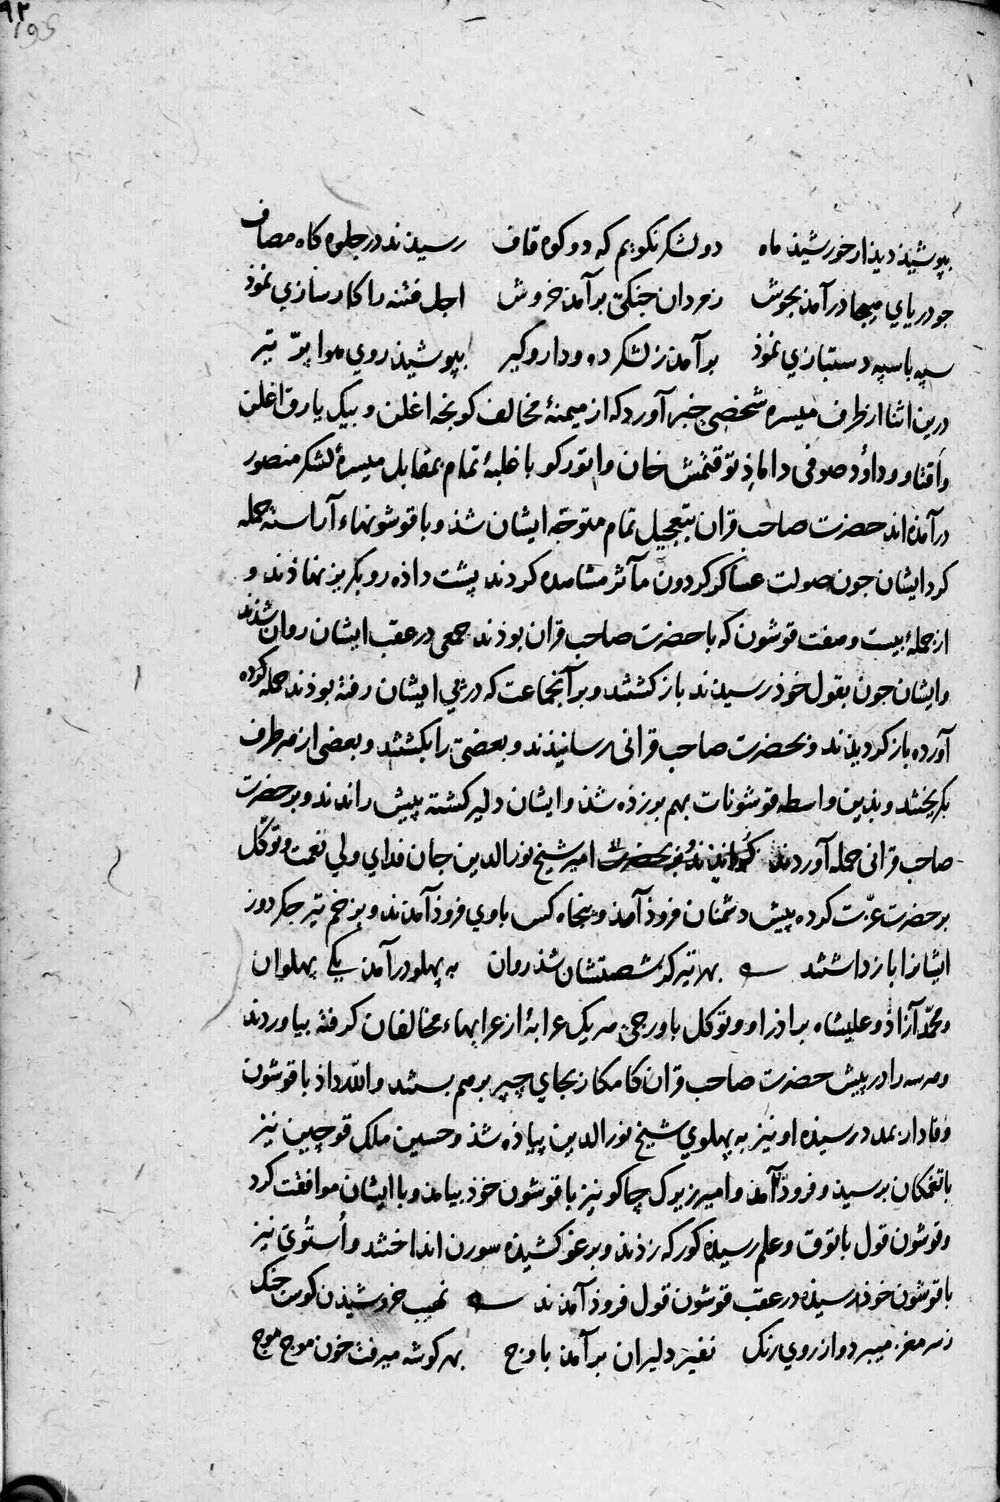 ۹۲
195
بپوشید دیدار خورشید ماه دو لشکر نکویم که دو کوه قاف رسیدند در جلوه کاه مصاف
جو دریای هیجا درآمذ بجوش ز مردان جنکی برآمذ خروش اجل فتنه را کارسازی نموذ
سپه با سپه دستبازی نموذ برآمذ ز لشکر ده و دار و کیر بپوشید روی هوا پرّ تیر
درین اثنا از طرف میسره شخصی خبر آورد که از میمنهٔ مخالف کونجه اغلن و بیک یارق اغلن
و اقتاو و داوٗد صوفی داماذ توقتمش خان و اتورکو با غلبهٔ تمام بمقابل میسرهٔ لشکر منصور
درآمذه‌اند حضرت صاحب قران بتعجیل تمام متوجّه ایشان شذ و با قوشونهاء آراسته حمله
کرد ایشان جون صولت عساکر کردون مآثر مشاهده کردند پشت داذه رو بکریز نهاذند و
از جملهٔ بیست و هفت قوشون که با حضرت صاحب قران بوذند جمعی در عقب ایشان روان شذند
و ایشان جون بقول خوذ رسیدند باز کشتند و بر آنجماعت که در پی ایشان رفته بوذند حمله کرده
آورده باز کردیدند و بحضرت صاحب قرانی رسانیذند و بعضی را بکشتند و بعضی از هر طرف
بکریختند و بذین واسطه قوشونات بهم برزذه شذ و ایشان دلیر کشته پیش راندند و بر حضرت
صاحب قرانی حمله آوردند امیر شیخ نورالدین جان فدای ولی نعمت و توکّل
بر حضرت عزّت کرده پیش دشمنان فروذ آمذ و پنجاه کس با وی فروذ آمذند و بزخم تیر جکر دوز
ایشانرا باز داشتند بهر تیر کز شصتشان شذ روان به پهلو درآمذ یکی پهلوان
و محمّد آزاذ و علیشاه براذر او و توکل باورجی هر یک عرابهٔ از عرابهاء مخالفان کرفته بیاوردند
و هر سه را در پیش حضرت صاحب قران کامکار بجای چپر بر هم بستند و اللّه داذ با قوشون
وفادار بمدد رسیذه او نیز به پهلوی شیخ نورالدین پیاذه شذ و حسین ملک قوجین نیز
با تغمکان برسیذ و فروذ آمذ و امیر زیرک چاکو نیز با قوشون خوذ بیامذ و با ایشان موافقت کرد
و قوشون قول با توق و علم رسیذه کورکه زذند و برغو کشیذه سورن انداختند و اُستُوی نیز
با قوشون خوذ رسیذه در عقب قوشون قول فروذ آمذند نهیب خروشیذن کوس جنک
ز سر مغز میبرد و از روی رنک نفیر دلیران برآمذ باوج بهر کوشه میرفت خون موج موج